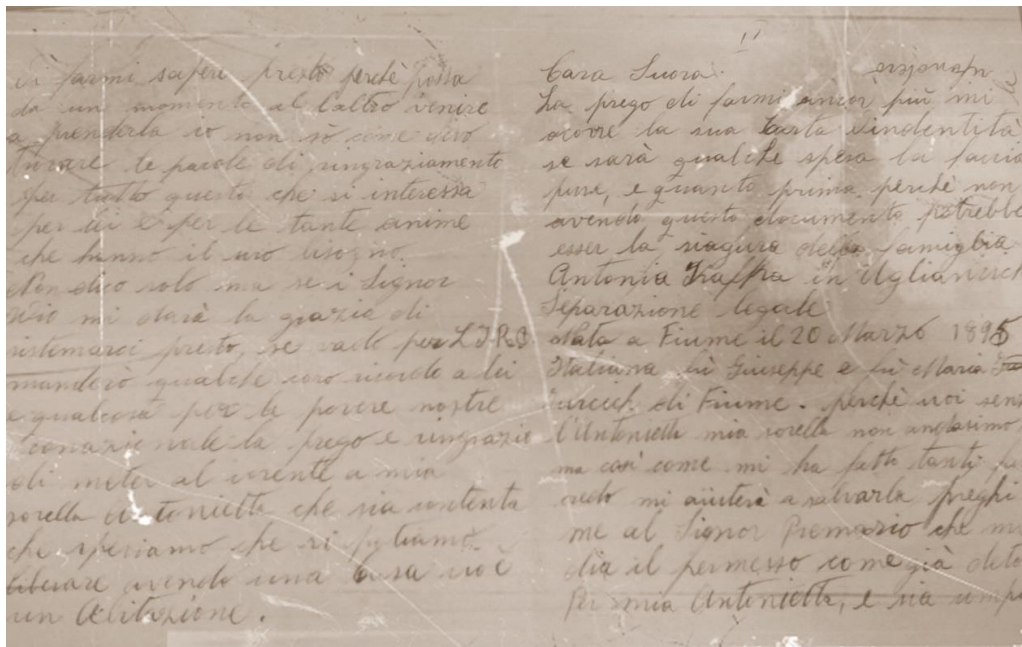 di farmi sapere presto perchè possa
da un momento al l'altro venire
a prenderla io non sò come
trovare le parole di ringraziamento
per tutto questo che si interessa
per lei e per le tante anime
che hanno il suo bisogno.
Non dico solo ma se i Signor
Dio mi darà la grazia di
sistemarci presto, se vado per L.I.R.O.
manderò qualche caro ricordo a lei
e qualcosa per le povere nostre
conazionale la prego e ringrazio
di meter al corente a mia
sorella Antonietta che sia contenta
che speriamo che si potiamo
liberare avendo una Casa cioè
un Abitazione.
II
Cara Suora.
La prego di farmi ancor più mi
ocore la sua Carta d'indentità
se sarà qualche spesa la faccia
pure, e quanto prima perchè non
avendo questo documento potrebbe
esser la siagura della famiglia
Antonia in
Separazione legale
Nata a Fiume il 20 Marzo 1895
Italiana fù Giuseppe e fù Maria
di Fiume. perchè noi
l'Antonietta mia sorella non andassimo
ma cosi come mi ha fatto tanti
credo mi aiuterà a salvarla preghi
me al Signor che
dia il permesso come già
Per mia Antonietta, e sia